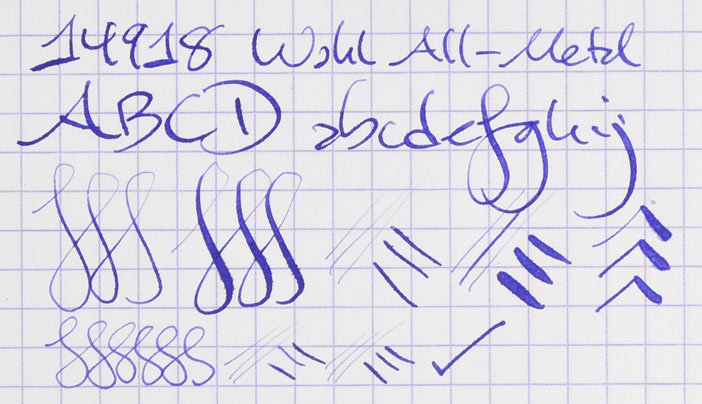 14918 Wahl All-Metal
ABCD abcdefghij